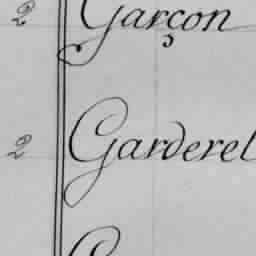 2 Garçon
2 Garderel